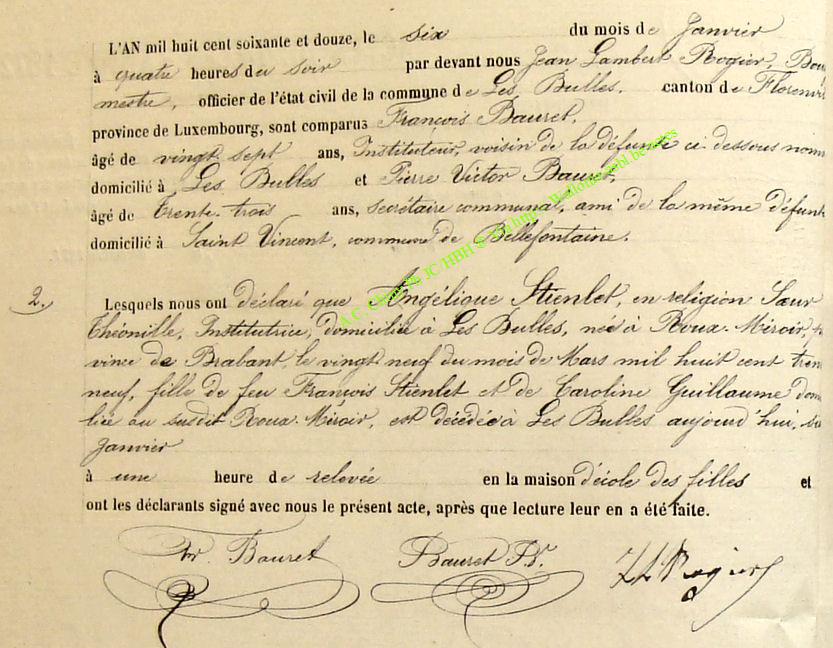 L'AN mil huit cent soixante et douze, le six du mois de Janvier
à quatre heures du soir par devant nous Jean Lambert Rogier, Bou
mestre, officier de l'état civil de la commune de Les Bulles, canton de Florenvi
province de Luxembourg, sont comparus François Bauret,
âgé de vingt sept ans, Instituteur, voisin de la défunte ci dessous nomm
domicilié à Les Bulles et Pierre Victor Bauret,
âgé de trente-trois ans, secrétaire communal, ami de la même défunte
domicilié à Saint Vincent, commune de Bellefontaine.
2. Lesquels nous ont déclaré que Angélique Stienlet, en religion Sœur
Théonille, Institutrice, domiciliée à Les Bulles, née à Roux-Miroir, p
vince de Brabant, le vingt neuf du mois de Mars mil huit cent tren
neuf, fille de feu François Stienlet et de Caroline Guillaume dom
liée au susdit Roux-Miroir, est décédée à Les Bulles aujourd'hui, six
Janvier
à une heure de relevée en la maison d'école des filles et
ont les déclarants signé avec nous le présent acte, après que lecture leur en a été faite.
Fr. Bauret Bauret Pr. JLRogier